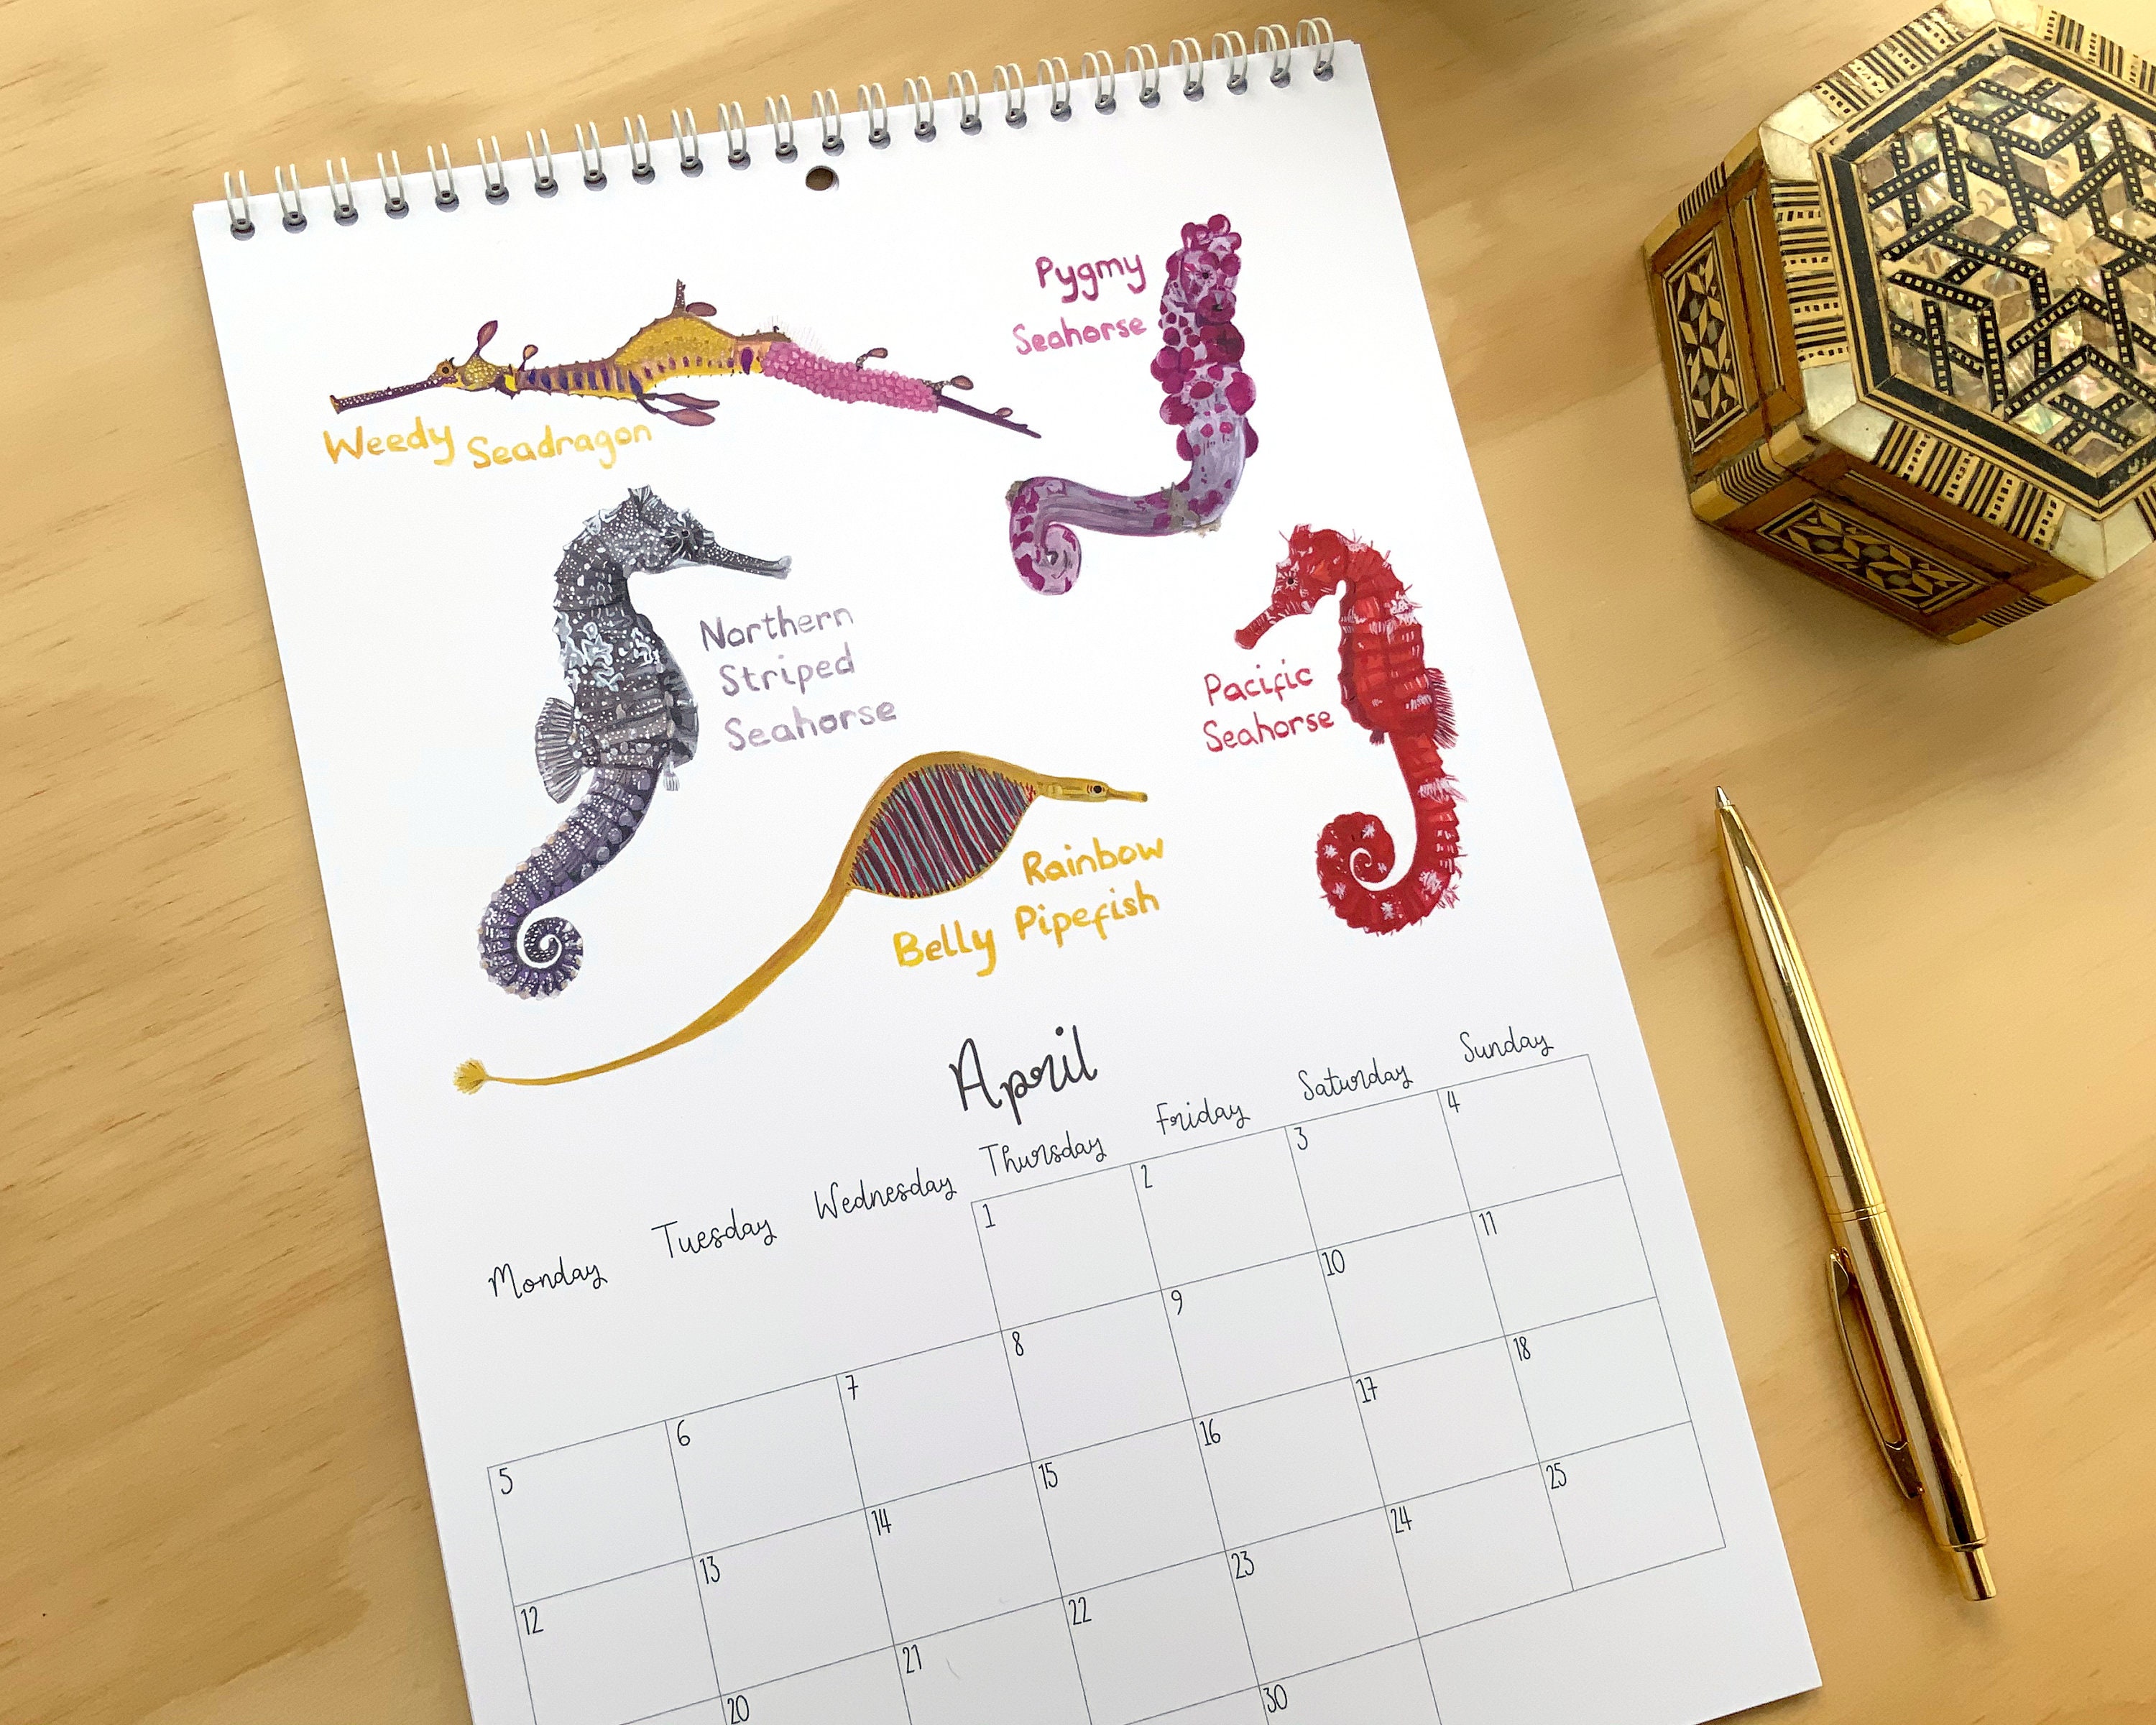 Pygmy
Seahorse
Weedy Seadragon
Northern
Striped
Seahorse
Pacific
Seahorse
Rainbow
Belly Pipefish
April
Monday Tuesday Wednesday Thursday Friday Saturday Sunday
1 2 3 4
5 6 7 8 9 10 11
12 13 14 15 16 17 18
20 21 22 23 24 25
30